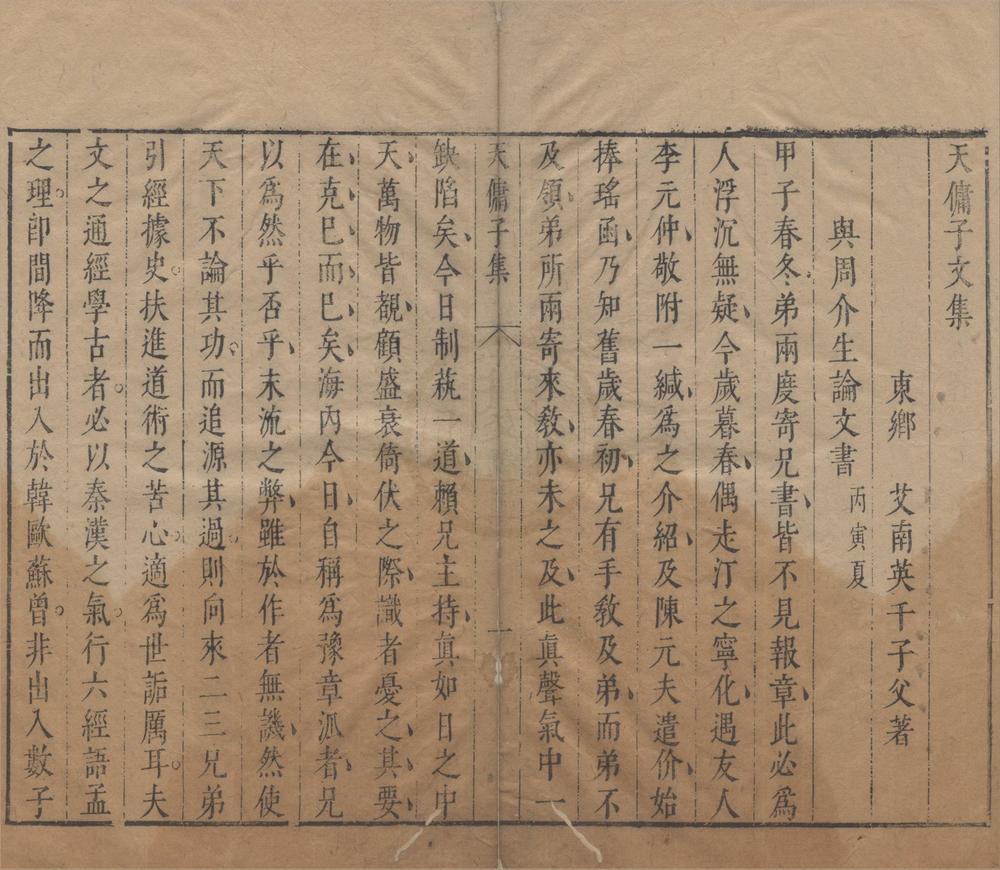 天傭子文集
東鄉　艾南英千子父著
與周介生論文書丙寅夏
甲子春冬弟兩度寄兄書皆不見報章此必爲
人浮沉無疑今歲暮春偶走汀之寧化遇友人
李元仲敬附一緘爲之介紹及陳元夫遣价始
捧瑤函乃知舊歲春初兄有手敎及弟而弟不
及領弟所兩寄來敎亦未之及此眞聲氣中一
天傭子集　一
缺陷矣今日制蓻一道賴兄主持眞如日之中
天萬物皆覩顧盛衰倚伏之際識者憂之其要
在克巳而巳矣海內今日自稱爲豫章派者兄
以爲然乎否乎末流之弊雖於作者無譏然使
天下不論其功而追源其過則向來二三兄弟
引經據史扶進道術之苦心適爲世詬厲耳夫
文之通經學古者必以秦漢之氣行六經語孟
之理卽間降而出入於韓歐蘇曾非出入數子